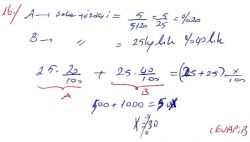 16/ A → = 5/5120 = 5/25 = %20
B → " = 25 kg lik %40 lık
25 · 20/100 + 25 · 40/100 = (25+25) x/100
A B
500 + 1000 = 50x
x = %30
CEVAP: B